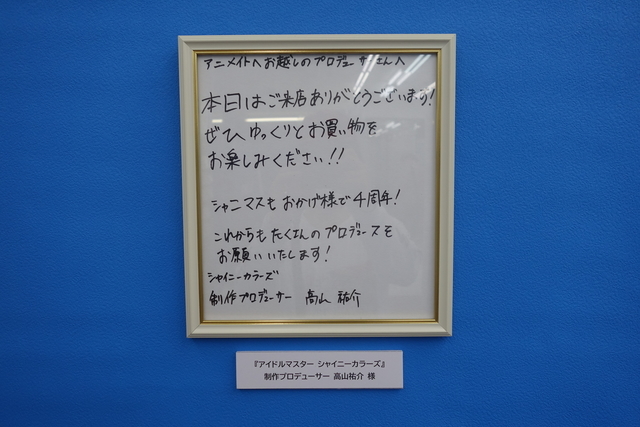 アニメイトへお越しのプロデューサーさんへ
本日はご来店ありがとうございます!
ぜひゆっくりとお買い物を
お楽しみください!!
シャニマスもおかげ様で4周年!
これからもたくさんのプロデュースを
お願いいたします!
シャイニーカラーズ
制作プロデューサー 高山 祐介
『アイドルマスター シャイニーカラーズ』
制作プロデューサー 高山祐介 様